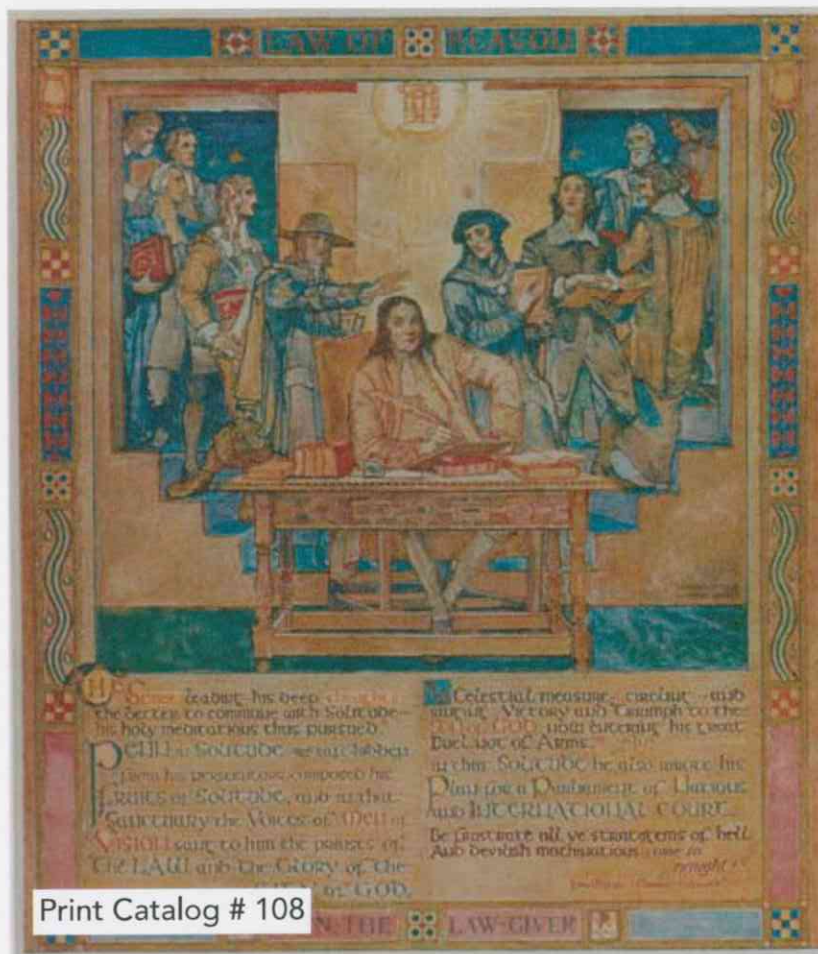 LAW OF REASON
He Spirit leading his deep
the better to commune with Solitude
his holy meditations thus pursued.
Penn in Solitude as in hidden
from his persecutors composed his
Fruits of Solitude, and in that
Sanctuary the Voices of Men of
Vision sang to him the praises of
The LAW and the Glory of the
of GOD,
In Celestial measures circling and
singing Victory and Triumph to the
of GOD now entering his great
Duel not of Arms.
in that Solitude he also wrote his
Plan for a Parliament of Nations
and INTERNATIONAL COURT.
Be frustrate all ye stratagems of hell
And devilish machinations come to
nought
THE LAW-GIVER
Print Catalog # 108